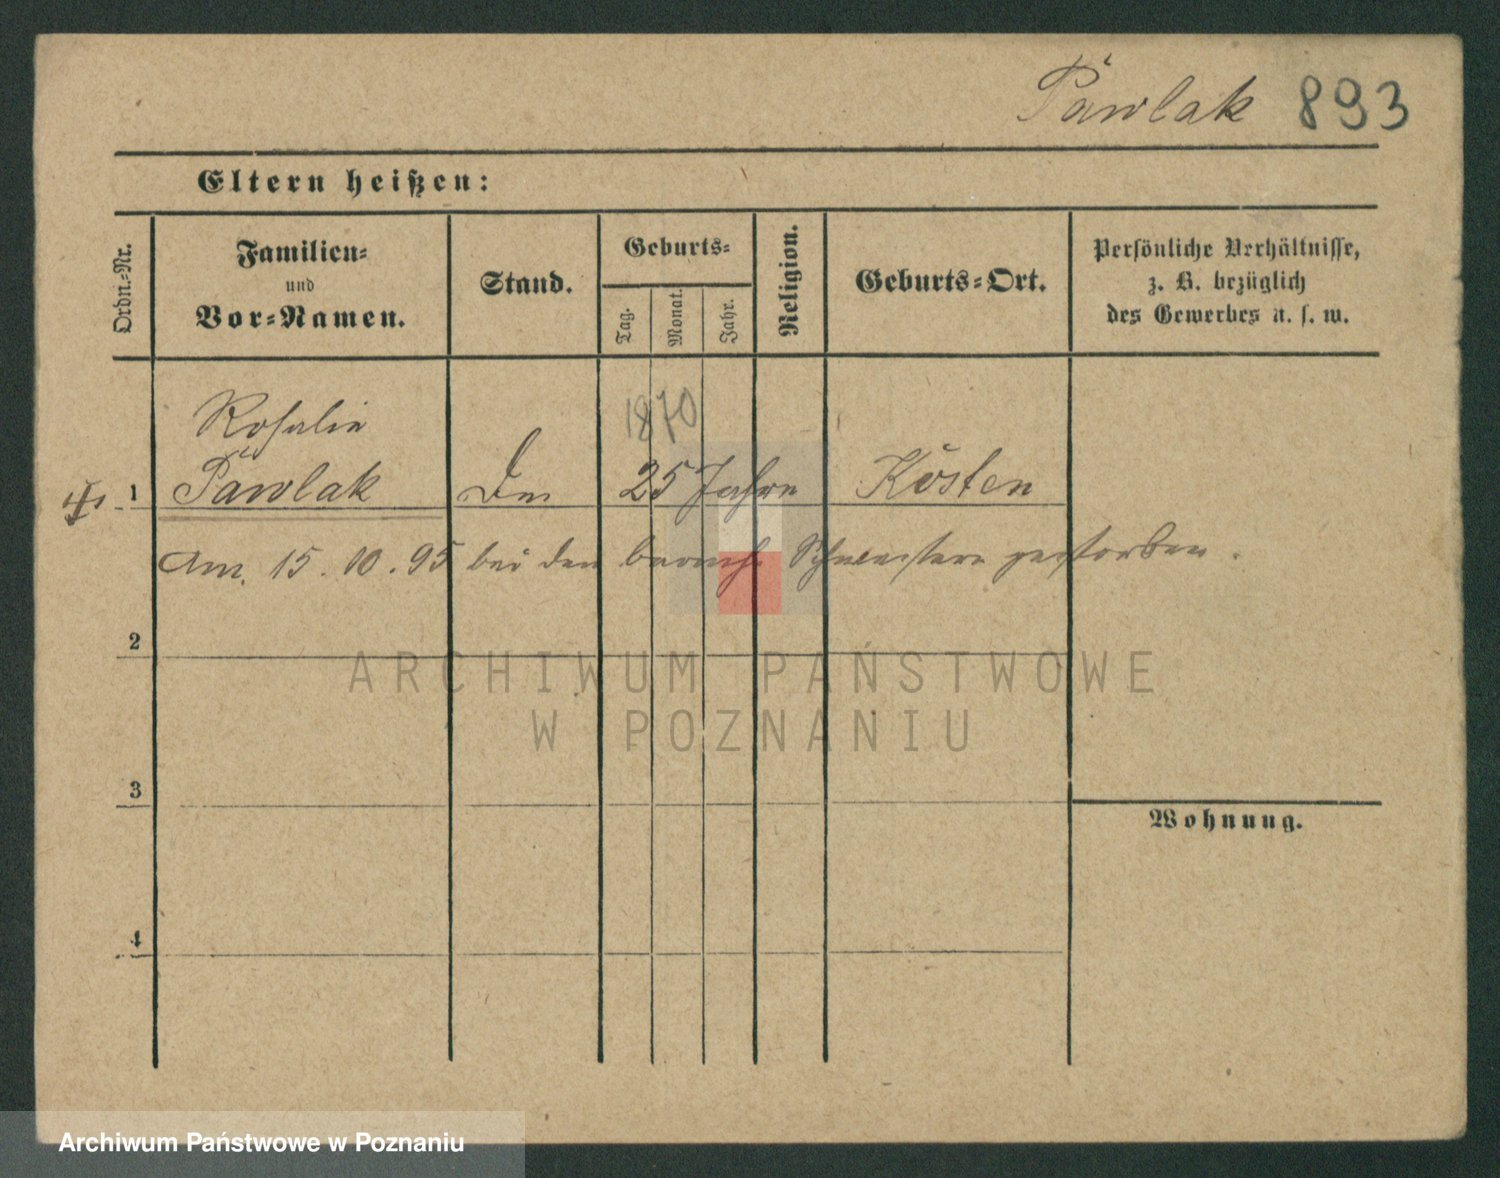 Pawlak 893
Eltern heißen:
Ordn.-Nr.
Familien-
und
Vor-Namen.
Stand.
Geburts-
Tag.
Monat.
Jahr.
Religion.
Geburts-Ort.
Persönliche Verhältnisse,
z. B. bezüglich
des Gewerbes u. s. w.
Rosalie
1870
1 Pawlak 25 Jahre Kosten
Am. 15. 10. 95 bei den barmh. Schwestern gestorben.
2
ARCHIWUM PAŃSTWOWE
W POZNANIU
3
Wohnung.
4
Archiwum Państwowe w Poznaniu